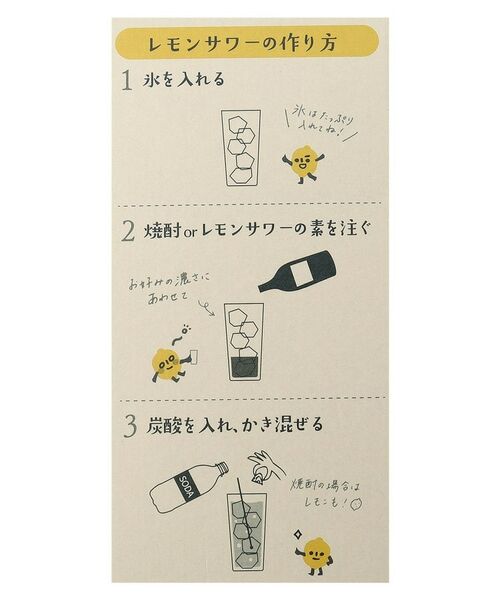 レモンサワーの作り方
1 氷を入れる
氷はたっぷり
入れてね!
2 焼酎orレモンサワーの素を注ぐ
お好みの濃さに
あわせて
3 炭酸を入れ、かき混ぜる
SODA
焼酎の場合は
レモンも!